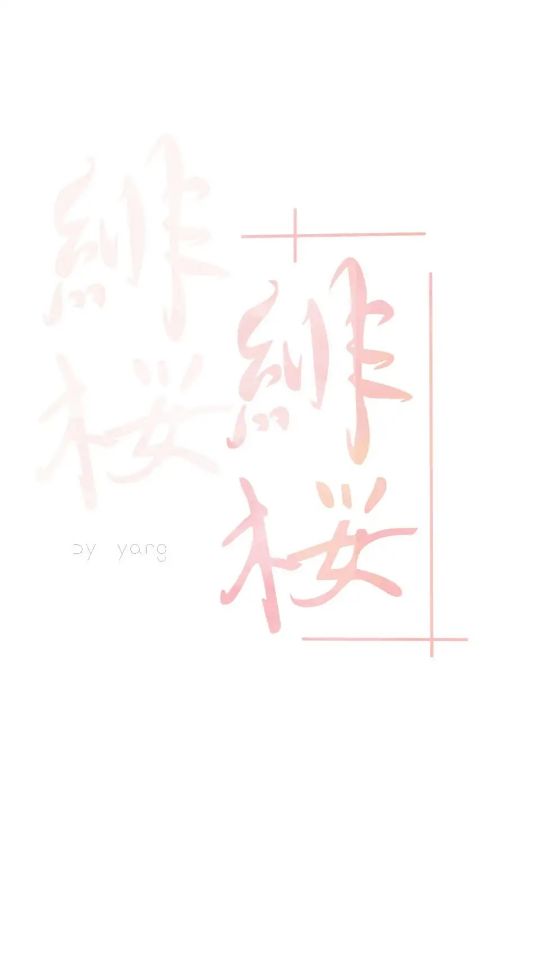 緋
桜
緋
桜
by yang